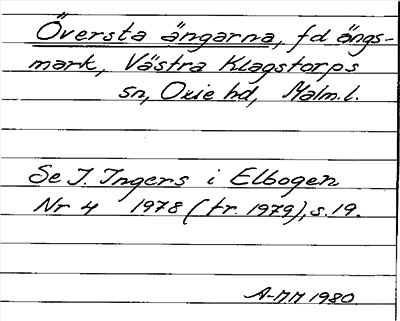 Översta ängarna, fd ängs-
mark, Västra Klagstorps
sn, Oxie hd, Malm.l.
Se I. Ingers i Elbogen
Nr 4 1978 (tr. 1979), s. 19.
A-MM 1980